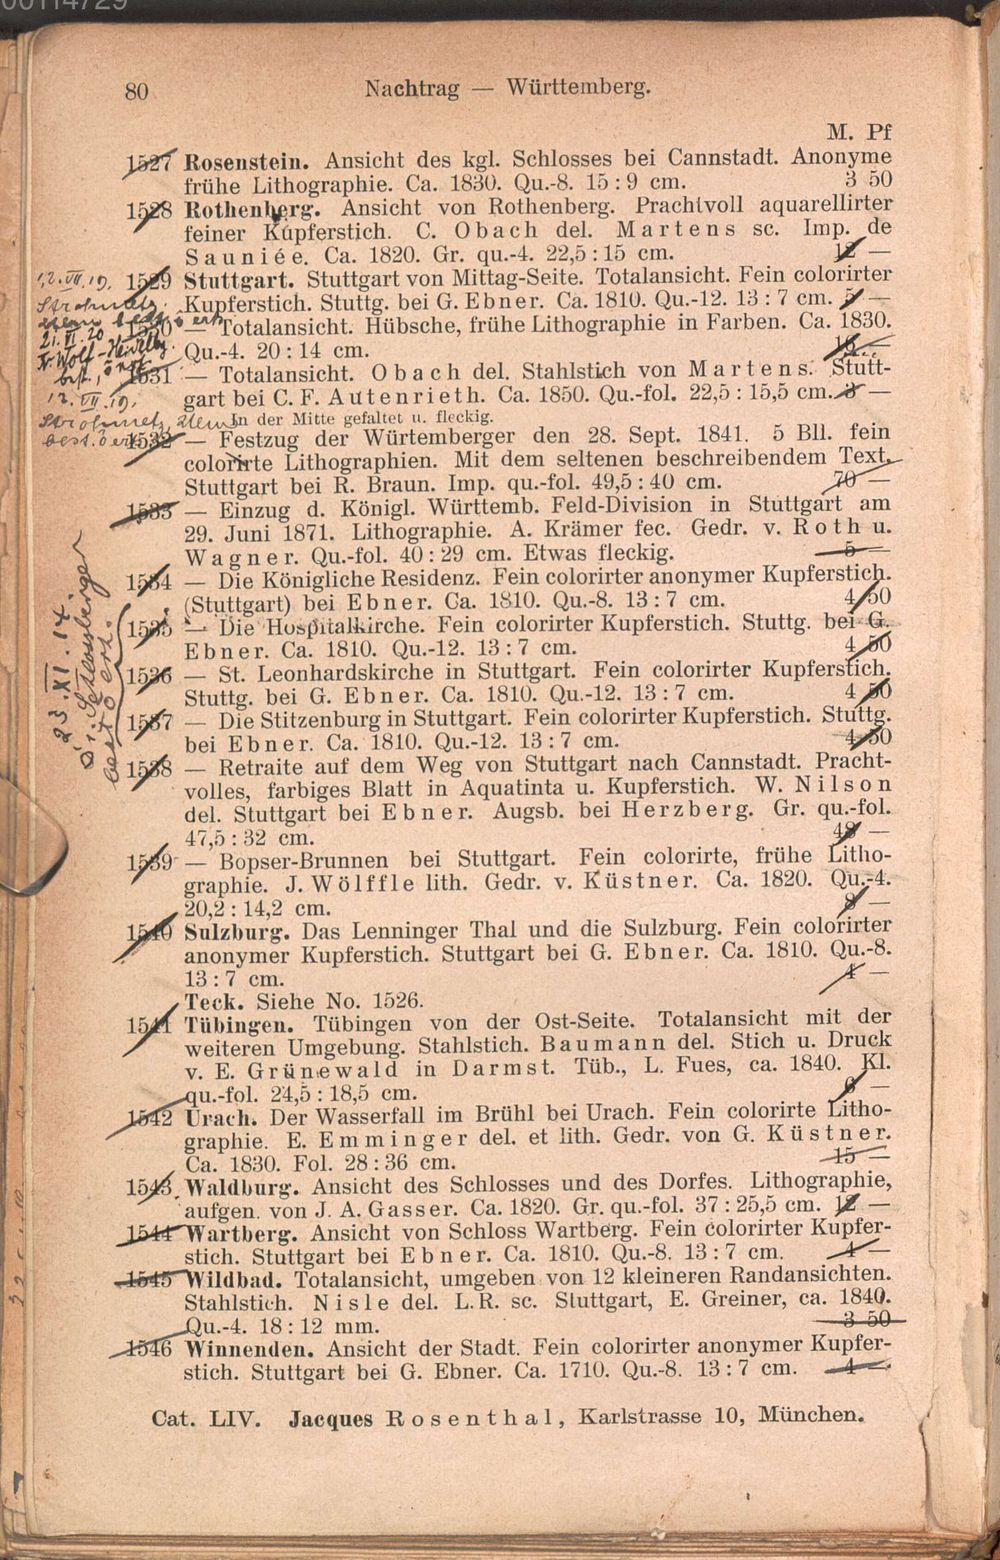 00114729
80 Nachtrag — Württemberg.
M. Pf
1527 Rosenstein. Ansicht des kgl. Schlosses bei Cannstadt. Anonyme
frühe Lithographie. Ca. 1830. Qu.-8. 15 : 9 cm. 3 50
1528 Rothenberg. Ansicht von Rothenberg. Prachtvoll aquarellirter
feiner Kupferstich. C. Obach del. Martens sc. Imp. de
Sauniée. Ca. 1820. Gr. qu.-4. 22,5 : 15 cm. 12 —
12. VII. 19. 1529 Stuttgart. Stuttgart von Mittag-Seite. Totalansicht. Fein colorirter
Strohmetz Kupferstich. Stuttg. bei G. Ebner. Ca. 1810. Qu.-12. 13 : 7 cm. 5 —
1530 — Totalansicht. Hübsche, frühe Lithographie in Farben. Ca. 1830.
21. VI. 20
Qu.-4. 20 : 14 cm.
Wolf - Heidelbg
1531 — Totalansicht. Obach del. Stahlstich von Martens. Stutt-
12. VII. 19. gart bei C. F. Autenrieth. Ca. 1850. Qu.-fol. 22,5 : 15,5 cm. 3 —
Strohmetz, Ulm In der Mitte gefaltet u. fleckig.
best. ö erh. 1532 — Festzug der Würtemberger den 28. Sept. 1841. 5 Bll. fein
colorirte Lithographien. Mit dem seltenen beschreibendem Text.
Stuttgart bei R. Braun. Imp. qu.-fol. 49,5 : 40 cm. 70 —
1533 — Einzug d. Königl. Württemb. Feld-Division in Stuttgart am
29. Juni 1871. Lithographie. A. Krämer fec. Gedr. v. Roth u.
Wagner. Qu.-fol. 40 : 29 cm. Etwas fleckig. 5 —
1534 — Die Königliche Residenz. Fein colorirter anonymer Kupferstich.
(Stuttgart) bei Ebner. Ca. 1810. Qu.-8. 13 : 7 cm. 4 50
1535 — Die Hospitalkirche. Fein colorirter Kupferstich. Stuttg. bei G.
Ebner. Ca. 1810. Qu.-12. 13 : 7 cm. 4 50
1536 — St. Leonhardskirche in Stuttgart. Fein colorirter Kupferstich.
Stuttg. bei G. Ebner. Ca. 1810. Qu.-12. 13 : 7 cm. 4 50
1537 — Die Stitzenburg in Stuttgart. Fein colorirter Kupferstich. Stuttg.
bei Ebner. Ca. 1810. Qu.-12. 13 : 7 cm. 4 50
23. XI. 14.
Dr. Schlossberger
best. ö erh.
1538 — Retraite auf dem Weg von Stuttgart nach Cannstadt. Pracht-
volles, farbiges Blatt in Aquatinta u. Kupferstich. W. Nilson
del. Stuttgart bei Ebner. Augsb. bei Herzberg. Gr. qu.-fol.
47,5 : 32 cm. 48 —
1539 — Bopser-Brunnen bei Stuttgart. Fein colorirte, frühe Litho-
graphie. J. Wölffle lith. Gedr. v. Küstner. Ca. 1820. Qu.-4.
20,2 : 14,2 cm. 8 —
1540 Sulzburg. Das Lenninger Thal und die Sulzburg. Fein colorirter
anonymer Kupferstich. Stuttgart bei G. Ebner. Ca. 1810. Qu.-8.
13 : 7 cm. 4 —
Teck. Siehe No. 1526.
1541 Tübingen. Tübingen von der Ost-Seite. Totalansicht mit der
weiteren Umgebung. Stahlstich. Baumann del. Stich u. Druck
v. E. Grünewald in Darmst. Tüb., L. Fues, ca. 1840. Kl.
qu.-fol. 24,5 : 18,5 cm. 6 —
1542 Urach. Der Wasserfall im Brühl bei Urach. Fein colorirte Litho-
graphie. E. Emminger del. et lith. Gedr. von G. Küstner.
Ca. 1830. Fol. 28 : 36 cm. 15 —
1543 Waldburg. Ansicht des Schlosses und des Dorfes. Lithographie,
aufgen. von J. A. Gasser. Ca. 1820. Gr. qu.-fol. 37 : 25,5 cm. 12 —
1544 Wartberg. Ansicht von Schloss Wartberg. Fein colorirter Kupfer-
stich. Stuttgart bei Ebner. Ca. 1810. Qu.-8. 13 : 7 cm. 4 —
1545 Wildbad. Totalansicht, umgeben von 12 kleineren Randansichten.
Stahlstich. Nisle del. L. R. sc. Stuttgart, E. Greiner, ca. 1840.
Qu.-4. 18 : 12 mm. 3 50
1546 Winnenden. Ansicht der Stadt. Fein colorirter anonymer Kupfer-
stich. Stuttgart bei G. Ebner. Ca. 1710. Qu.-8. 13 : 7 cm. 4 —
Cat. LIV. Jacques Rosenthal, Karlstrasse 10, München.